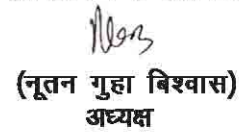 (नूतन गुहा बिश्वास)
अध्यक्ष